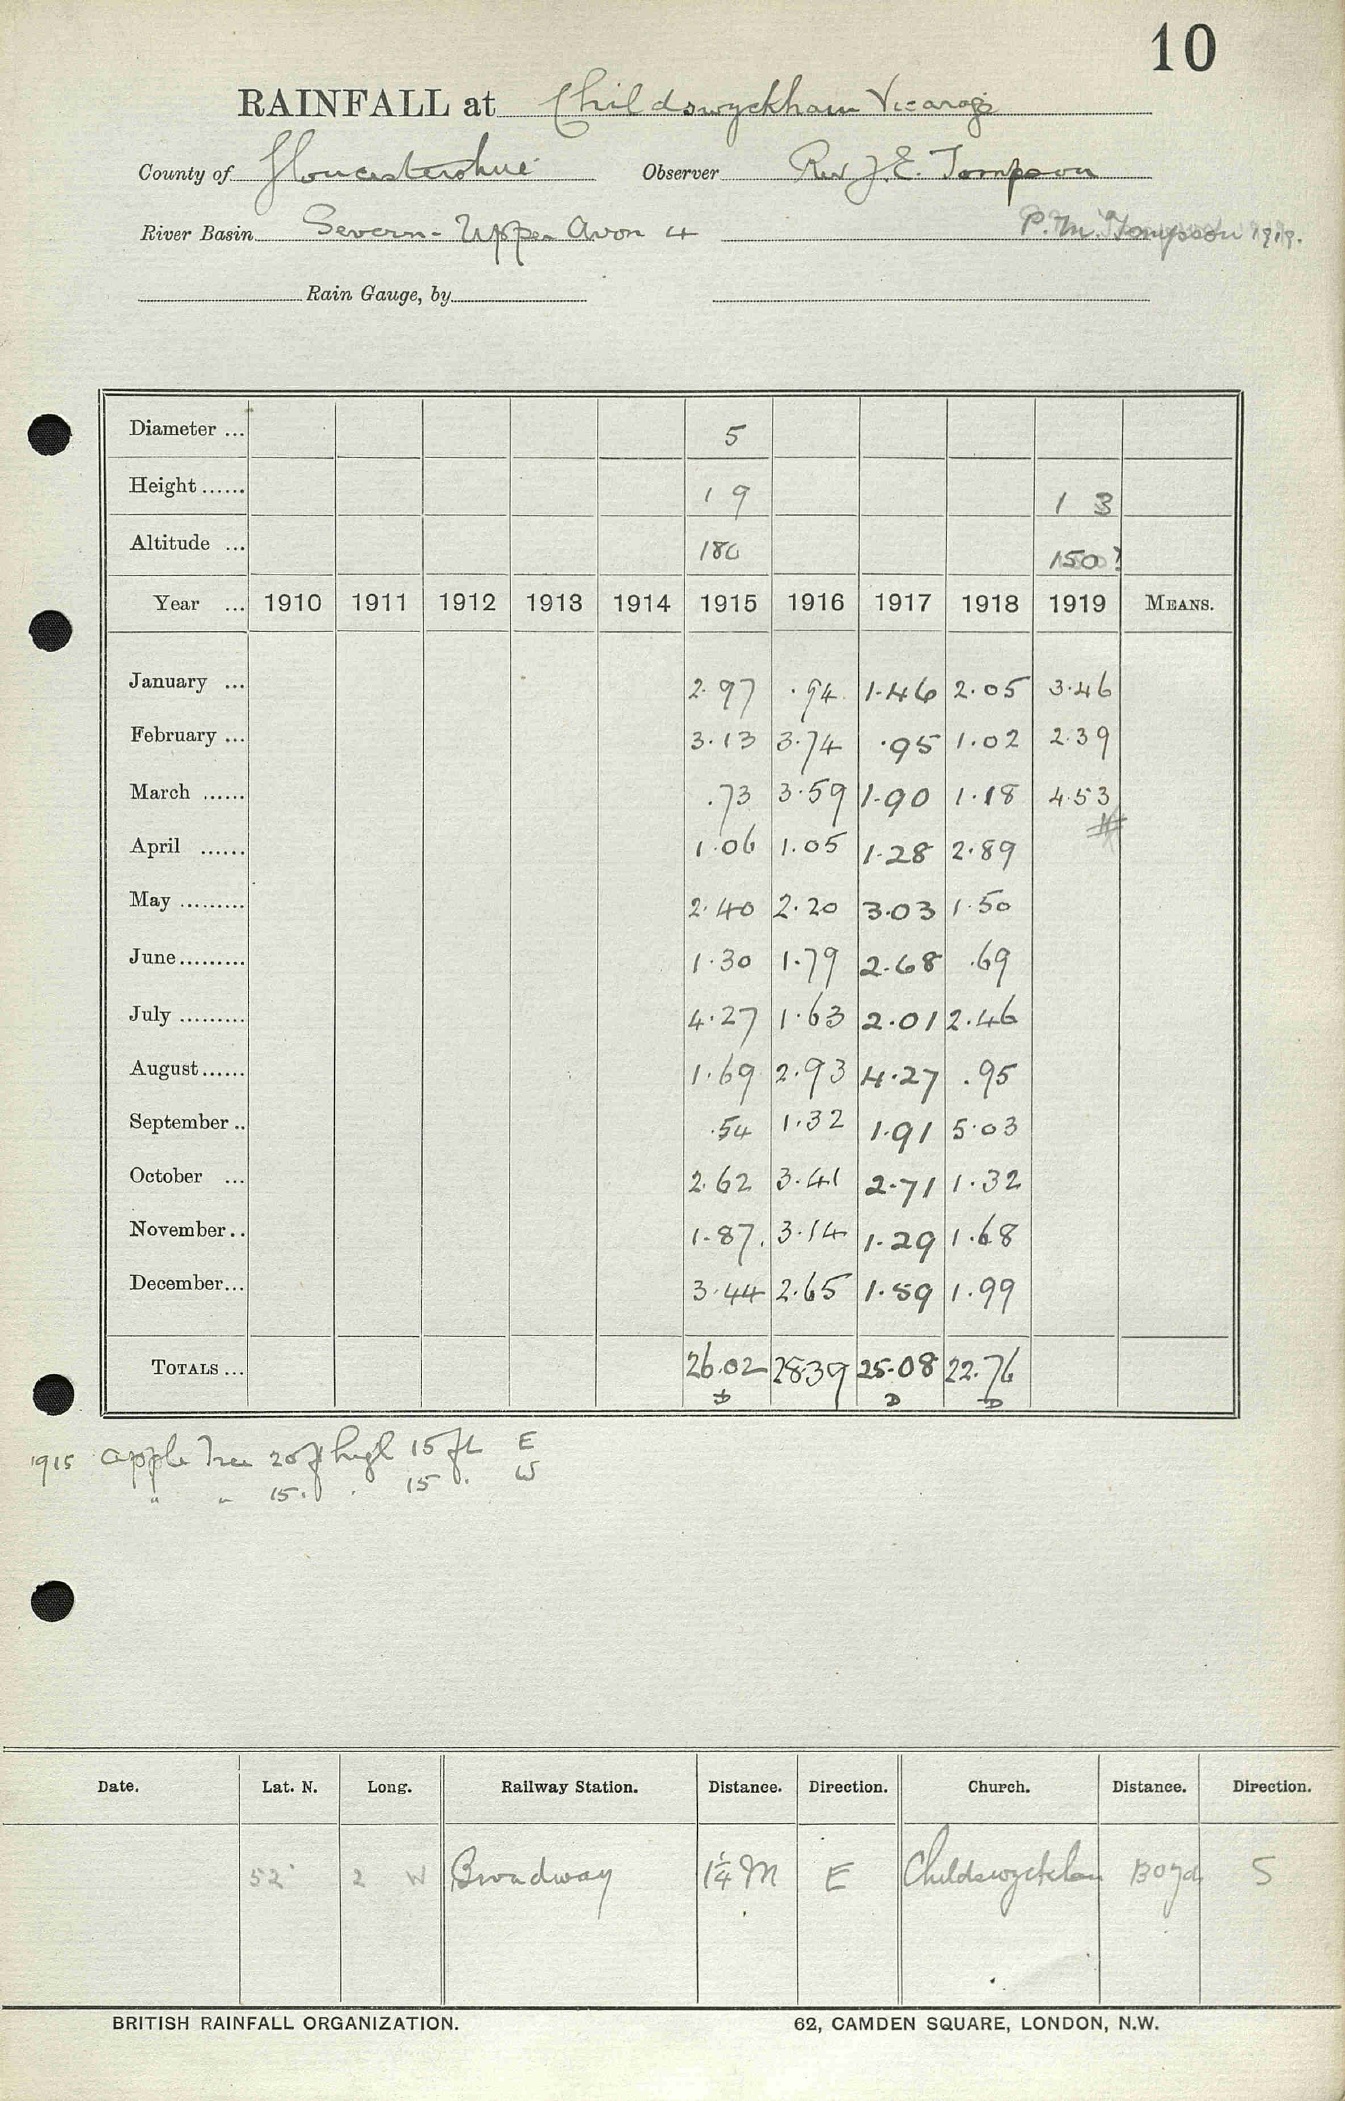 10
RAINFALL at Childswyckham Vicarage
County of Gloucestershire Observer Rev J. E. Tompson
River Basin Severn - Upper Avon 4 P. M. Tompson 1919.
Rain Gauge, by
Diameter ... 5
Height ...... 1 9 1 3
Altitude ... 180 150?
Year ... 1910 1911 1912 1913 1914 1915 1916 1917 1918 1919 MEANS.
January ... 2.97 .94 1.46 2.05 3.46
February ... 3.13 3.74 .95 1.02 2.39
March ...... .73 3.59 1.90 1.18 4.53
April ...... 1.06 1.05 1.28 2.89
May ......... 2.40 2.20 3.03 1.50
June ......... 1.30 1.79 2.68 .69
July ......... 4.27 1.63 2.01 2.46
August ...... 1.69 2.93 4.27 .95
September .. .54 1.32 1.91 5.03
October ... 2.62 3.41 2.71 1.32
November .. 1.87. 3.14 1.29 1.68
December ... 3.44 2.65 1.59 1.99
TOTALS ... 26.02 28.39 25.08 22.76
D D D
1915 Apple Tree 20 ft high 15 ft E
" " 15 . . 15 . W
Date. Lat. N. Long. Railway Station. Distance. Direction. Church. Distance. Direction.
52° 2 W Broadway 1¼ M E 80 yd S
BRITISH RAINFALL ORGANIZATION. 62, CAMDEN SQUARE, LONDON, N.W.